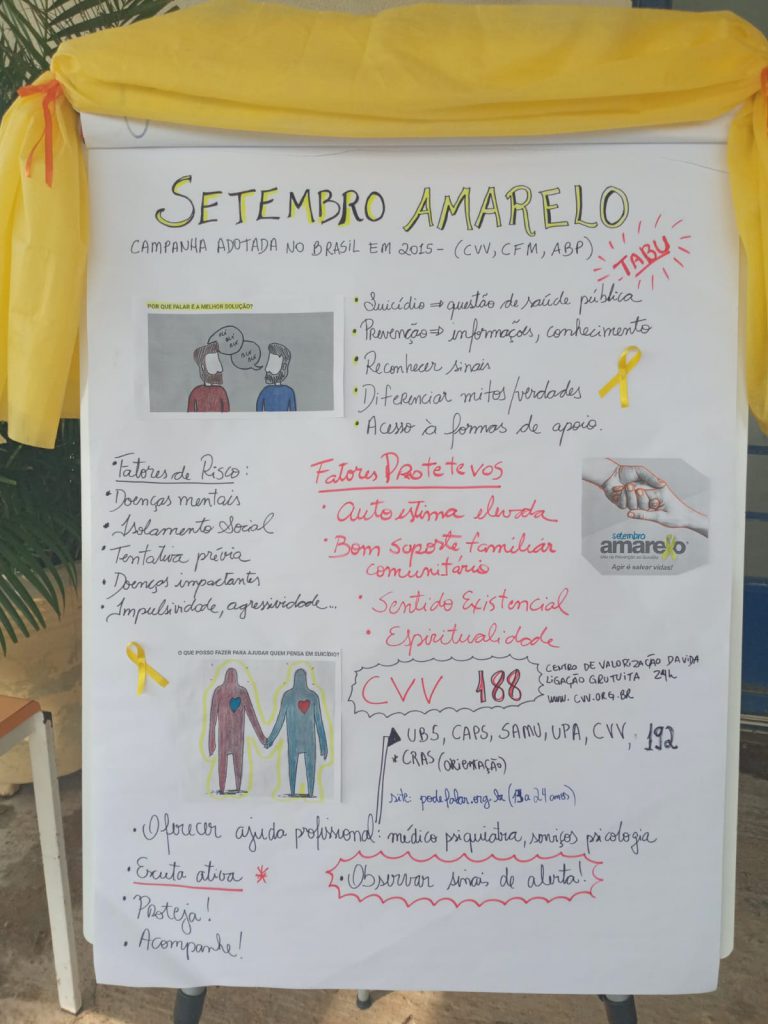 SETEMBRO AMARELO
CAMPANHA ADOTADA NO BRASIL EM 2015 - (CVV, CFM, ABP)
TABU
POR QUE FALAR É A MELHOR SOLUÇÃO?
BLÁ
BLÁ
BLÁ
BLÁ
BLÁ
• Suicídio ⇒ questão de saúde pública
• Prevenção ⇒ informações, conhecimento
• Reconhecer sinais
• Diferenciar mitos/verdades
• Acesso à formas de apoio.
• Fatores de Risco:
• Doenças mentais
• Isolamento Social
• Tentativa prévia
• Doenças impactantes
• Impulsividade, agressividade...
Fatores Protetevos
• Auto estima elevada
• Bom suporte familiar
comunitário
• Sentido Existencial
• Espiritualidade
setembro
amarelo
Mês de Prevenção ao Suicídio
Agir é salvar vidas!
O QUE POSSO FAZER PARA AJUDAR QUEM PENSA EM SUICÍDIO?
CVV 188
CENTRO DE VALORIZAÇÃO DA VIDA
LIGAÇÃO GRUTUITA 24h
WWW.CVV.ORG.BR
UBS, CAPS, SAMU, UPA, CVV, 192
* CRAS (ORIENTAÇÃO)
site: podefalar.org.br (13 a 24 anos)
• Oferecer ajuda profissional: médico psiquiatra, serviços psicologia
• Escuta ativa *
• Observar sinais de alerta!
• Proteja!
• Acompanhe!